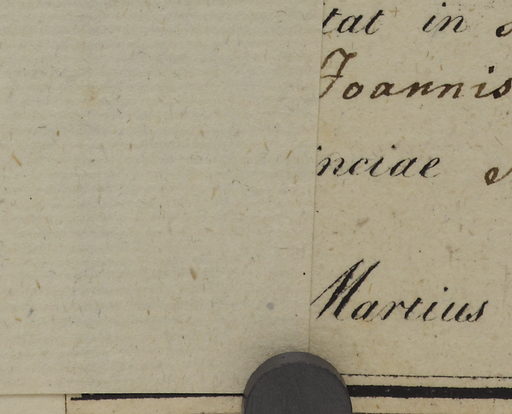 tat in
Joannis
inciae
Martius